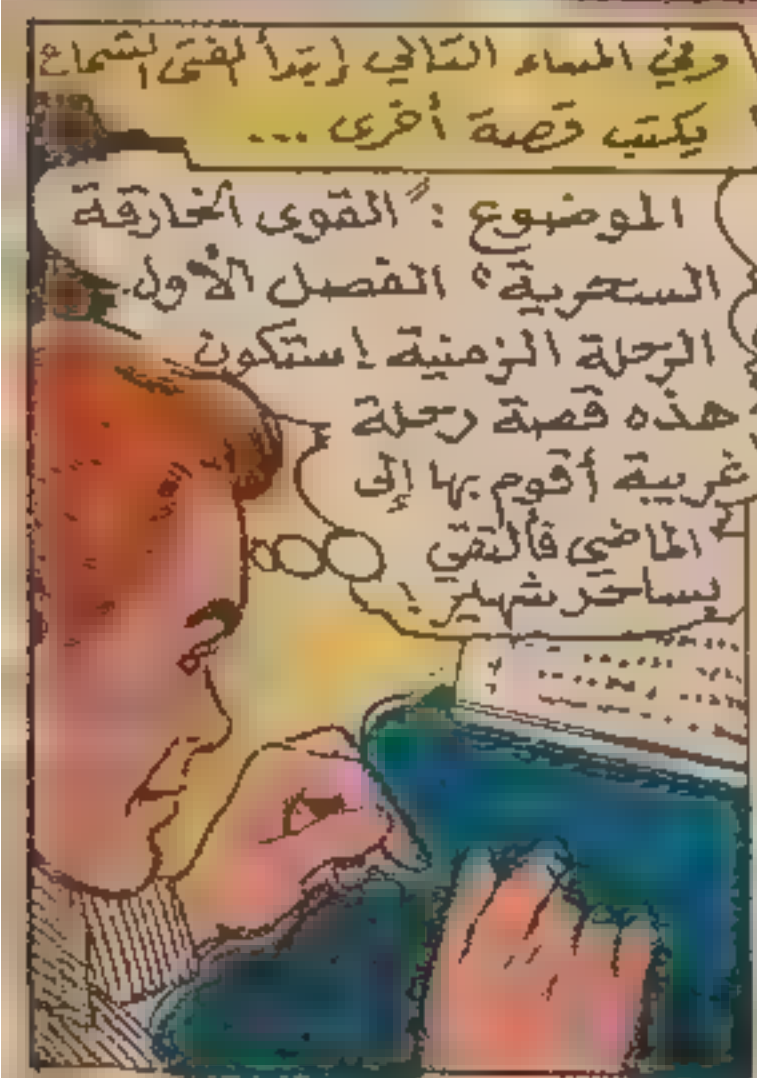 وفي المساء التالي إبتدأ الفتى الشماع
يكتب قصة أخرى ...
الموضوع : "القوى الخارقة
السحرية" الفصل الأول
الرحلة الزمنية ! ستكون
هذه قصة رحلة
غريبة أقوم بها إلى
الماضي فألتقي
بساحر شهير !